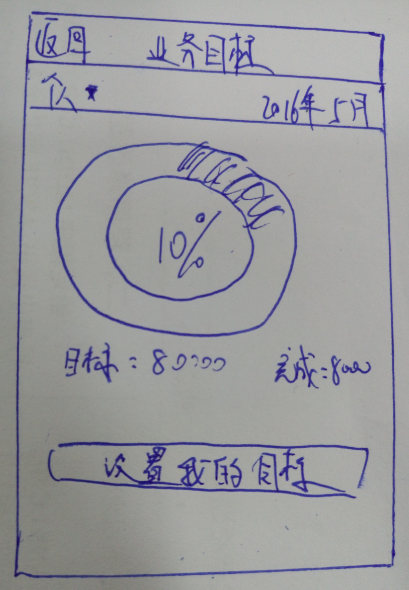 返回 业务目标
个人 2016年5月
10%
目标:80000 完成:8000
设置我的目标